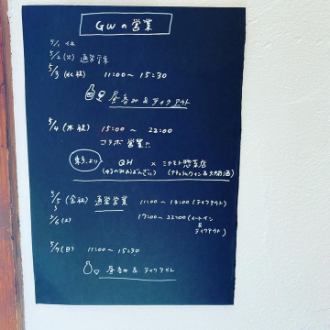 GWの営業
5/1
5/2(火) 通常営業
5/3(水祝) 11:00～15:30
昼呑み&テイクアウト
5/4(木祝) 15:00～22:00
コラボ営業!!
東京より QH × ミヤモト惣菜店
5/5(金祝) 通常営業 11:00～ (テイクアウト)
5/6(土) 17:00～22:00 (イートイン
&
テイクアウト)
5/7(日) 11:00～15:30
昼呑み&テイクアウト